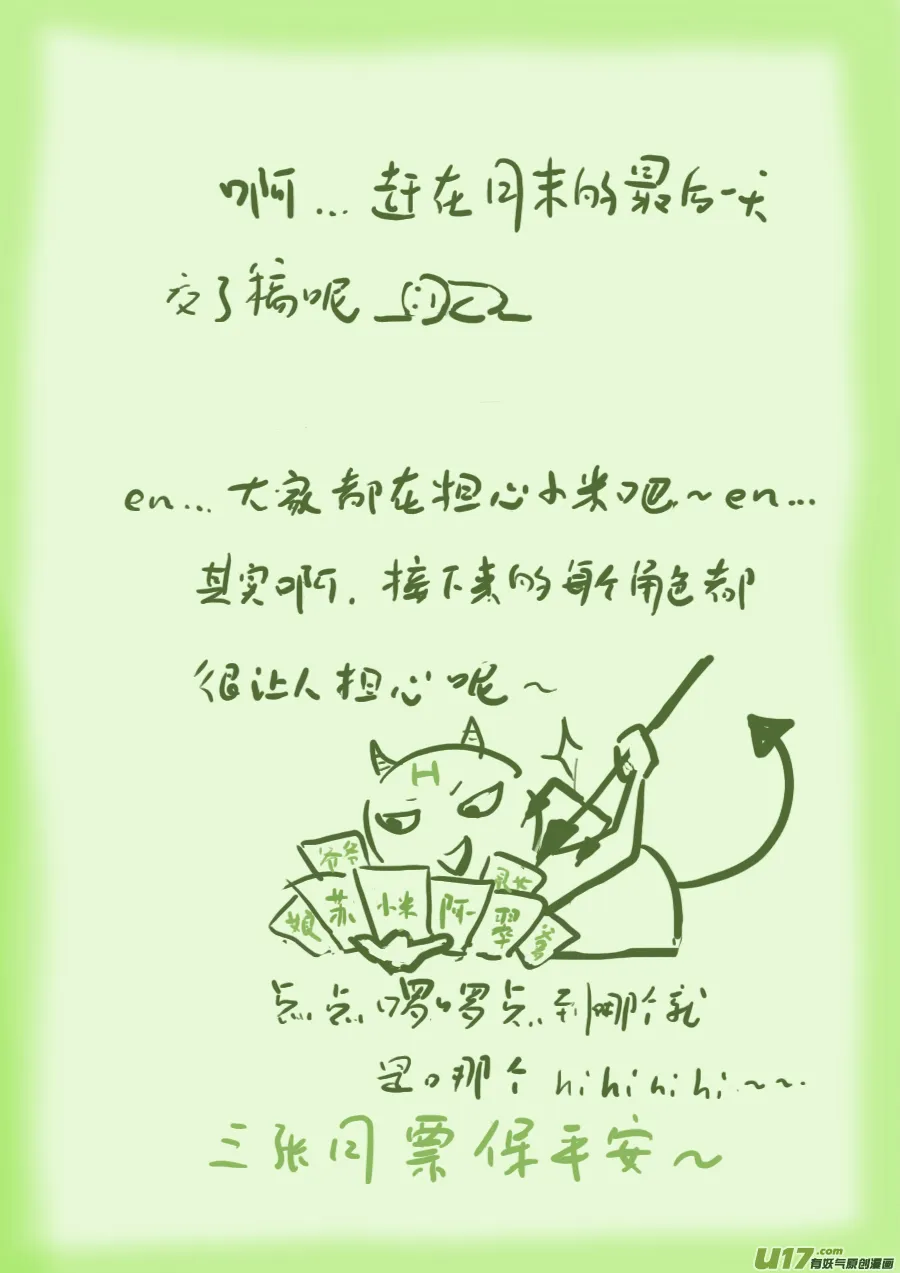 啊...赶在月末的最后一天
交了稿呢
en...大家都在担心小米吧~en...
其实啊.接下来的每个角色都
很让人担心呢~
H
爷爷
娘
苏
小米
阿一
翠
爹
点点啰啰点到哪个就
是那个hihihihi~~
三张月票保平安~
U17.com
有妖气原创漫画